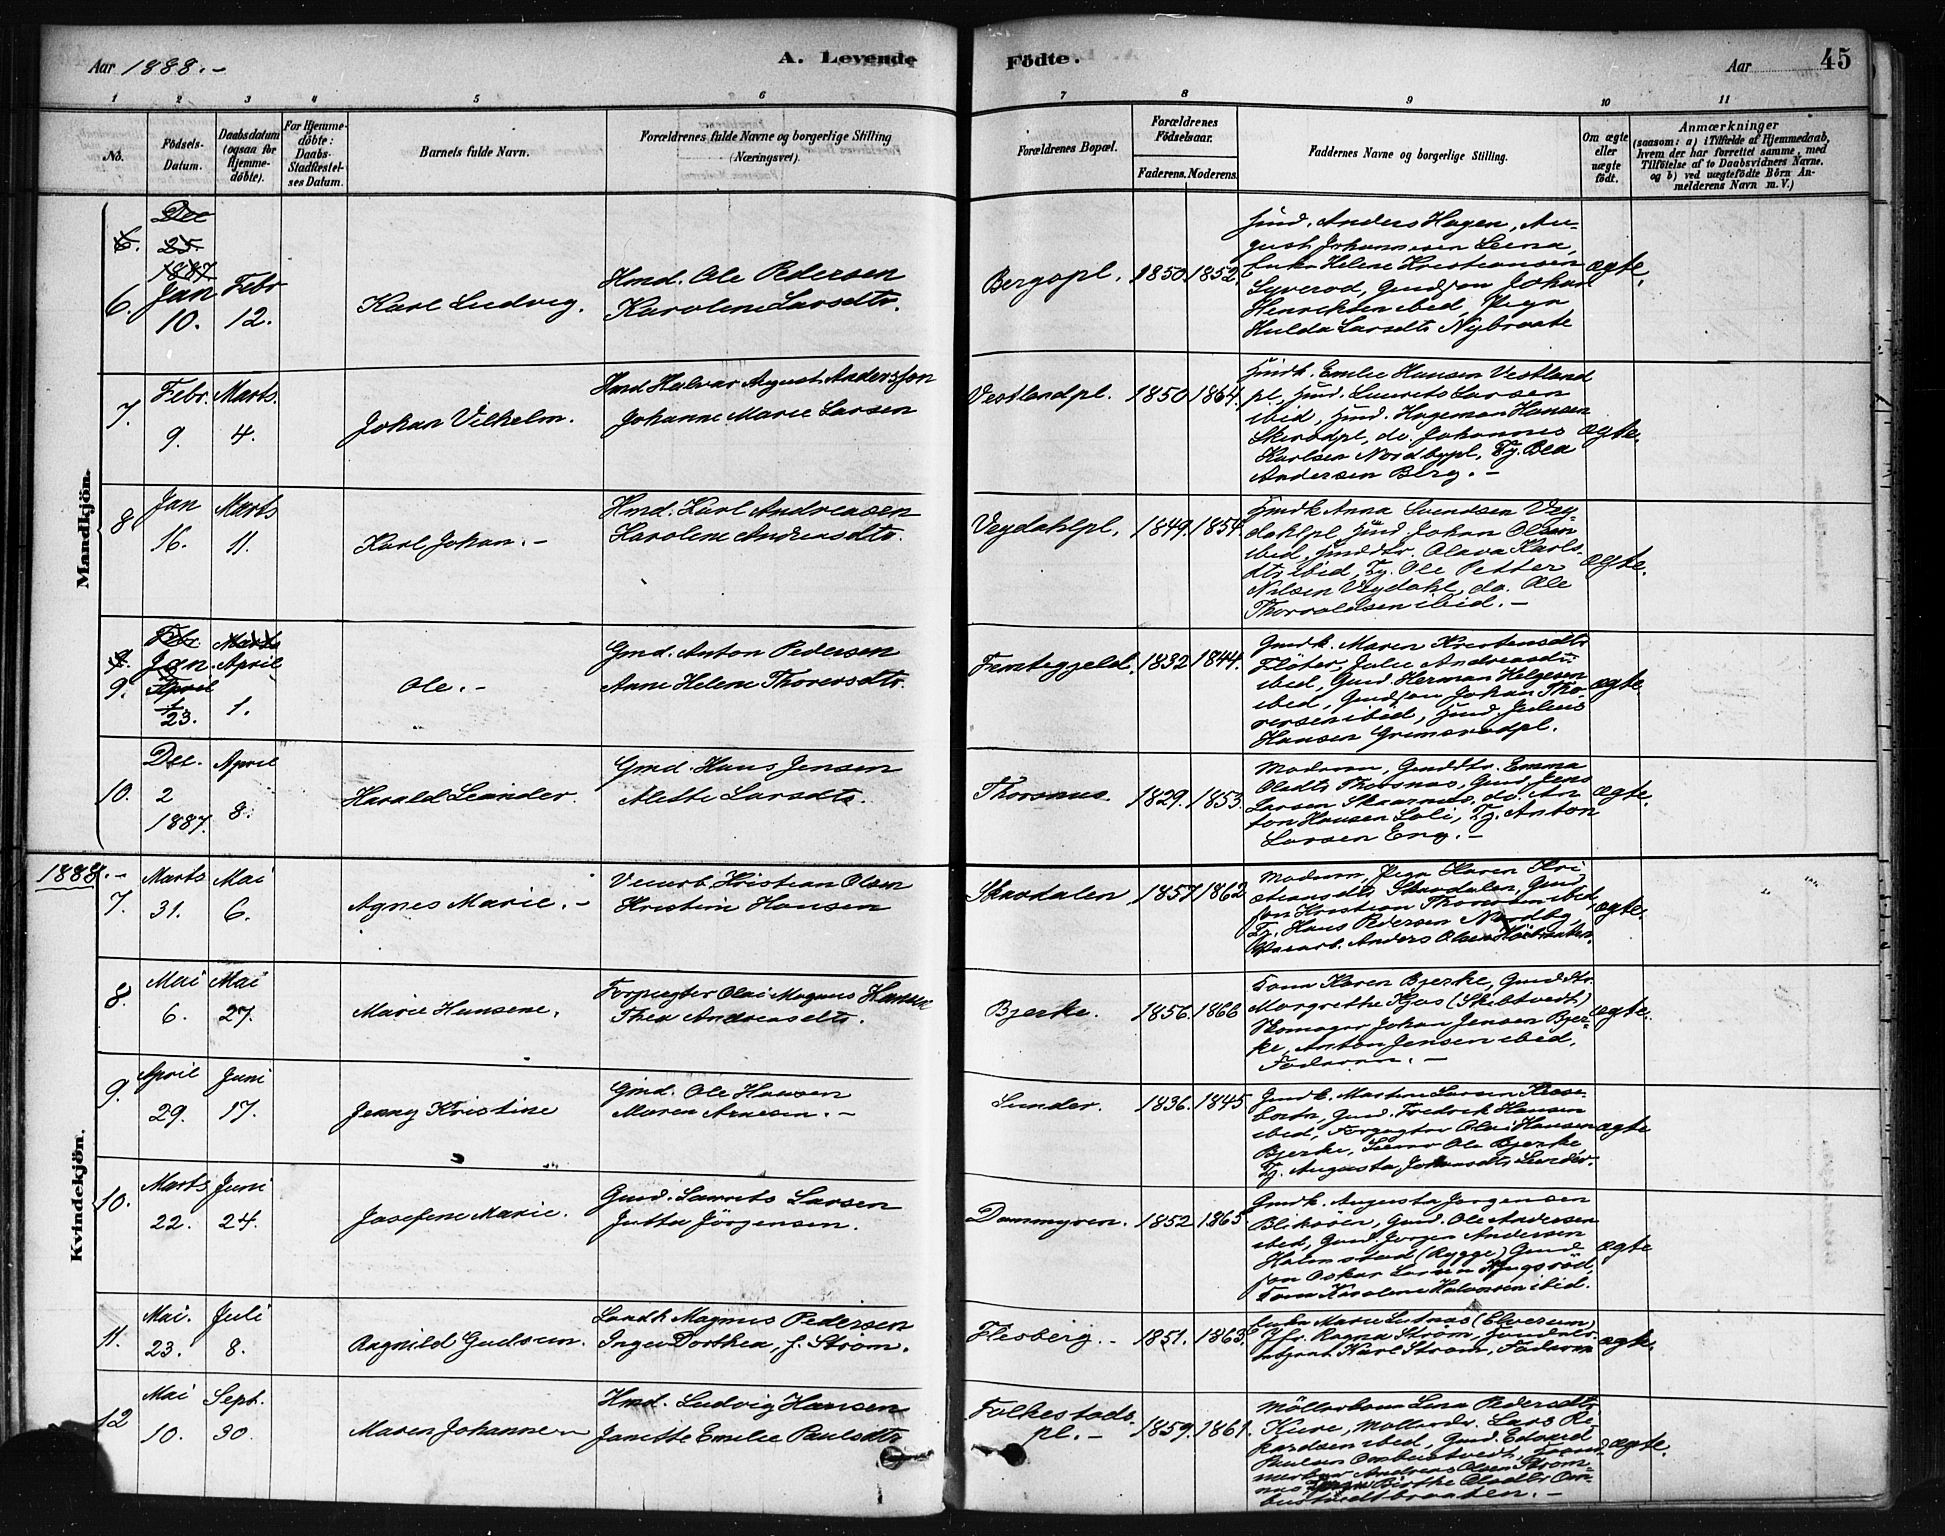 Aar 1888.-
A. Levende
Födte.
Aar
45
1 2 3 4 5 6 7 8 9 10 11
No.
Födsels-Datum.
Daabsdatum (ogsaa for Hjemme-döbte).
For Hjemme-döbte: Daabs-Stadfæstel-ses Datum.
Barnets fulde Navn.
Forældrenes fulde Navne og borgerlige Stilling (Næringsvei).
Forældrenes Bopæl.
Forældrenes Födselsaar.
Faderens. Moderens.
Faddernes Navne og borgerlige Stilling.
Om ægte eller uægte födt.
Anmærkninger
(saasom: a) i Tilfælde af Hjemmedaab, hvem der har forrettet samme, med Tilföielse af to Daabsvidners Navne. og b) ved uægtefödte Börn An-melderens Navn m. V.)
Mandkjön.
6.
Dec
25.
1887
6. Jan 10. Febr 12.
Karl Ludvig.
Hmd. Ole Pedersen
Karolene Larsdtr.
Bergspl. 1850. 1852.
Hmd. Anders Hagen, Au-
gust Johannesen Lena,
Enke Helene Kristiansen
Syverød, Gmdsøn Johan
Henriksen ibid, Pige
Hulda Larsdtr Nybraate
ægte.
7. Febr. 9. Marts. 4.
Johan Vilhelm.
Hmd Halvor August Anderssøn
Johanne Marie Larsen
Vestlandpl. 1850 1864.
Hmdk. Emilie Hansen Vestland
pl, Hmd. Laurits Larsen
ibid, Hmd. Hageman Hansen
Skerødpl, do. Johannes
Karlsen Nordbypl, Tj. Bea
Andersen Berg. -
ægte.
8. Jan 16. Marts 11.
Karl Johan. -
Hmd. Karl Andreasen
Karolene Andreasdtr.
Vejdahlpl. 1849. 1854.
Hmdk Anna Svendsen Vej-
dahlpl, Hmd Johan Olsen
ibid, Hmddtr. Olava Karls
dtr ibid, Tj. Ole Petter
Nilsen Vejdahl, do. Ole
Thorvaldsen ibid. -
ægte.
9. Febr Marts
Jan. April
9. April 23. 1.
Ole. -
Gmd. Anton Pedersen
Anne Helene Thorersdtr.
Femtegjeld. 1832 1844.
Gmdk. Maren Kristensdtr
Fløter, Julie Andreasdtr
ibid, Gmd. Herman Helgesen
ibid, Gmdsøn Johan Tho-
rersen ibid, Hmd Julius
Hansen Grimsrødpl.
ægte
10. Dec. 2 1887. April 8.
Harald Leander.
Gmd. Hans Jensen
Alette Larsdtr.
Thorsnæs 1829. 1853.
Moderen, Gmddtr. Emma
Olsdtr Thorsnæs, Gmd, Jens
Larsen Skaarnæs, do. An
ton Hansen Soli, Tj. Anton
Larsen Eng. -
ægte.
1888. -
Kvindekjön.
7. Marts 31. Mai 6.
Agnes Marie. -
Kristian Olsen
Kristine Hansen
Skavdalen 1857 1862
Moderen, Pige Karen Kri
stiansdtr Skavdalen, Gmd
søn Kristian Thoresen ibid,
Tj. Hans Pedersen Nordby,
Anders Olsen
ægte.
8. Mai 6. Mai 27.
Marie Hansene.
Forpagter Olai Magnus Hansen
Thea Andreasdtr.
Bjerke. 1856. 1866
Tante Karen Bjerke, Gmddtr.
Margrethe Kjos (Skibtvedt)
Skomager Johan Jensen Bjer-
ke, Anton Jensen ibid,
Faderen. -
ægte.
9. April 29. Juni 17.
Jenny Kristine
Gmd. Ole Hansen
Maren Arnesen. -
Sunder. 1836. 1845
Gmdk. Marthe Larsen
Gmd. Fredrik Hansen
ibid, Forpagter Olai Hansen
Bjerke, Ole Bjerke
Tj. Augusta Johansdtr Sunder.
ægte
10. Marts 22. Juni 24.
Josefine Marie.
Gmd. Laurits Larsen
Jutta Jörgensen.
Dammyren. 1852 1865
Gmdk. Augusta Jørgensen
Gmd. Ole Andersen
ibid, Gmd. Jørgen Andersen
Halmstad (Rygge) Gmd
søn Oskar Larsen
Karoline Halvorsen ibid.
ægte
11. Mai. 23. Juli 8.
Ragnild Gudrun.
Landh. Magnus Pedersen
Inger Dorthea, f. Strøm.
Flesberg. - 1851. 1863.
Enke Marie (Elverum)
Jfr. Ragna Strøm,
Karl Strøm, Faderen
ægte.
12 Mai 10. Sept. 30.
Maren Johanne
Hmd. Ludvig Hansen
Janette Emilie Paulsdtr
Folkestads-
pl. - 1859. 1861.
Möllerkone Lina Pedersdtr
Kure, Møllerdr. Lars Ri-
kardsen ibid, Gmd. Edvard
Paulsen Ombustvedt,
Andreas Olsen Strøm-
næs, Birthe Olsdtr Om-
bustvedtbraaten. -
ægte.